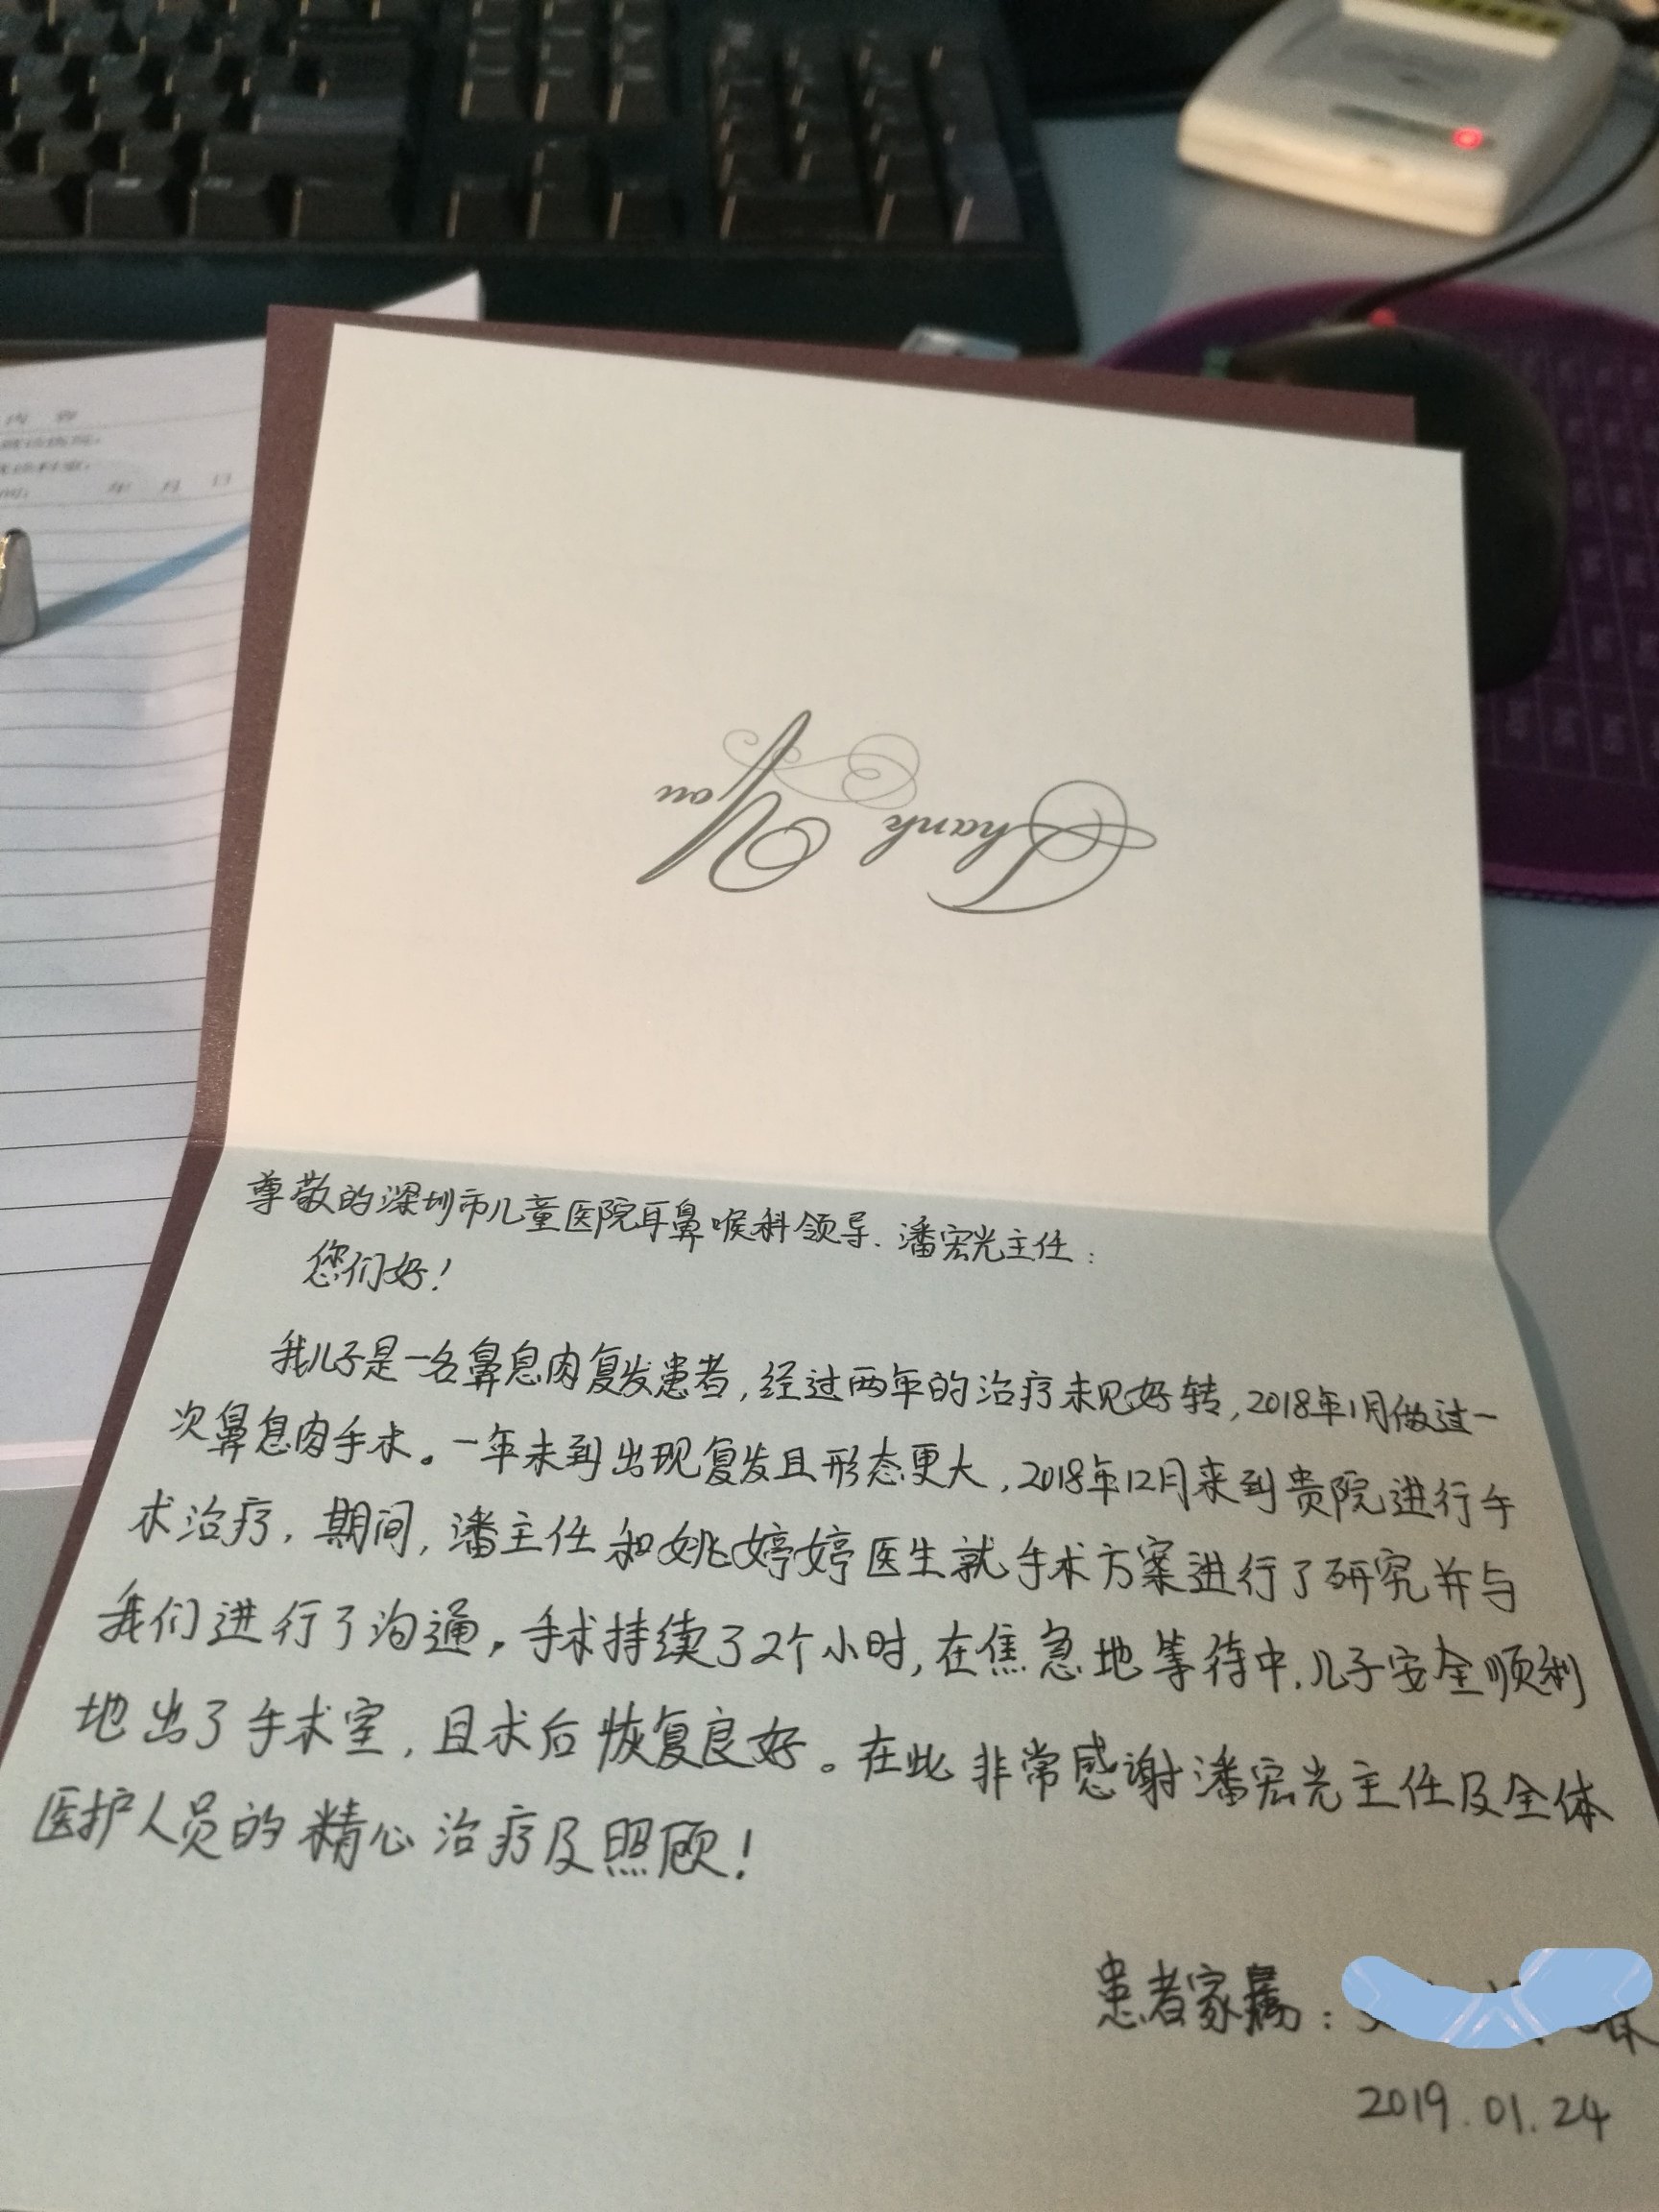 Thank You
尊敬的深圳市儿童医院耳鼻喉科领导、潘宏光主任：
您们好！
我儿子是一名鼻息肉复发患者，经过两年的治疗未见好转，2018年1月做过一
次鼻息肉手术。一年未到出现复发且形态更大，2018年12月来到贵院进行手
术治疗，期间，潘主任和姚婷婷医生就手术方案进行了研究并与
我们进行了沟通，手术持续了2个小时，在焦急地等待中，儿子安全顺利
地出了手术室，且术后恢复良好。在此非常感谢潘宏光主任及全体
医护人员的精心治疗及照顾！
患者家属：
2019.01.24
年 月 日